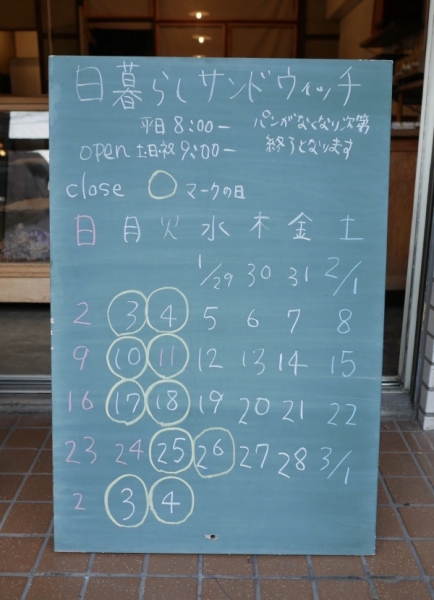 日暮らしサンドウィッチ
平日 8:00− パンがなくなり次第
open 土日祝 9:00− 終了となります
close ○ マークの日
日 月 火 水 木 金 土
1/29 30 31 2/1
2 3 4 5 6 7 8
9 10 11 12 13 14 15
16 17 18 19 20 21 22
23 24 25 26 27 28 3/1
2 3 4